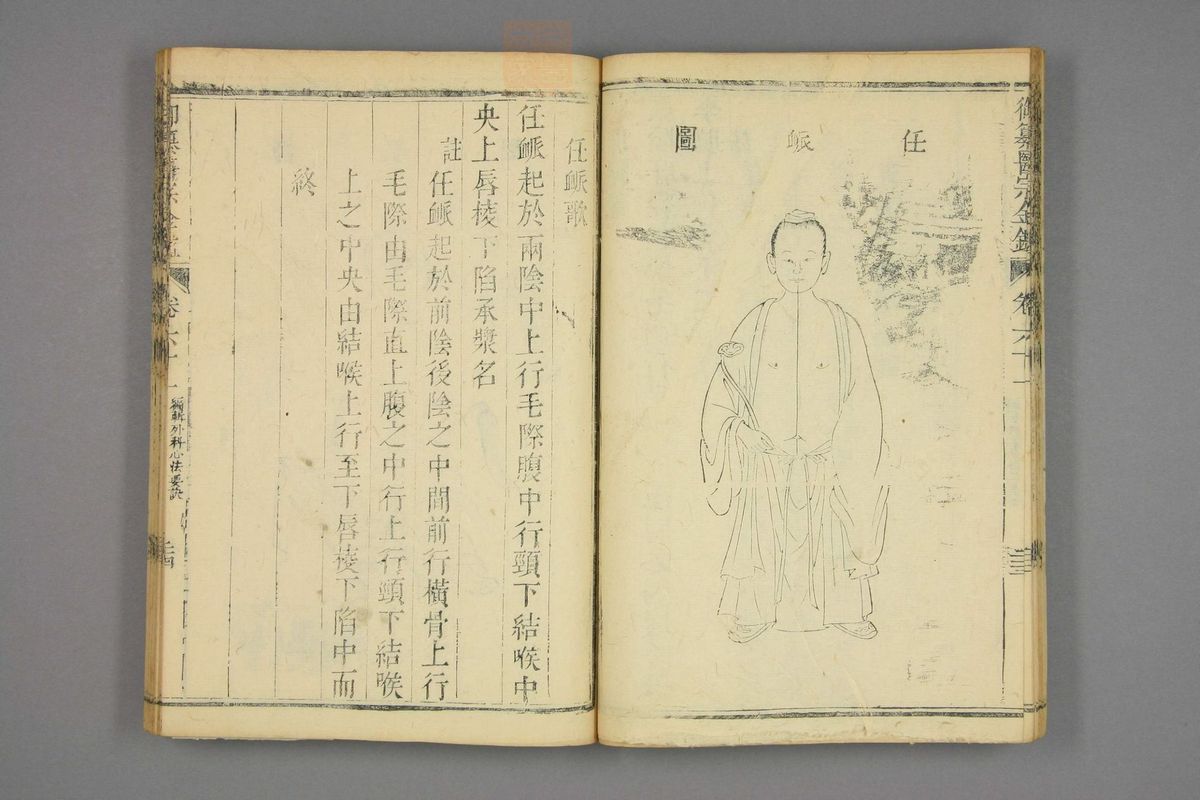 任脈圖
御纂醫宗金鑑
卷六十一
任脈歌
任脈起於兩陰中上行毛際腹中行頸下結喉中
央上唇棱下陷承漿名
註任脈起於前陰後陰之中間前行橫骨上行
毛際由毛際直上腹之中行上行頸下結喉
上之中央由結喉上行至下唇棱下陷中而
終
卷六十一
編輯外科心法要訣